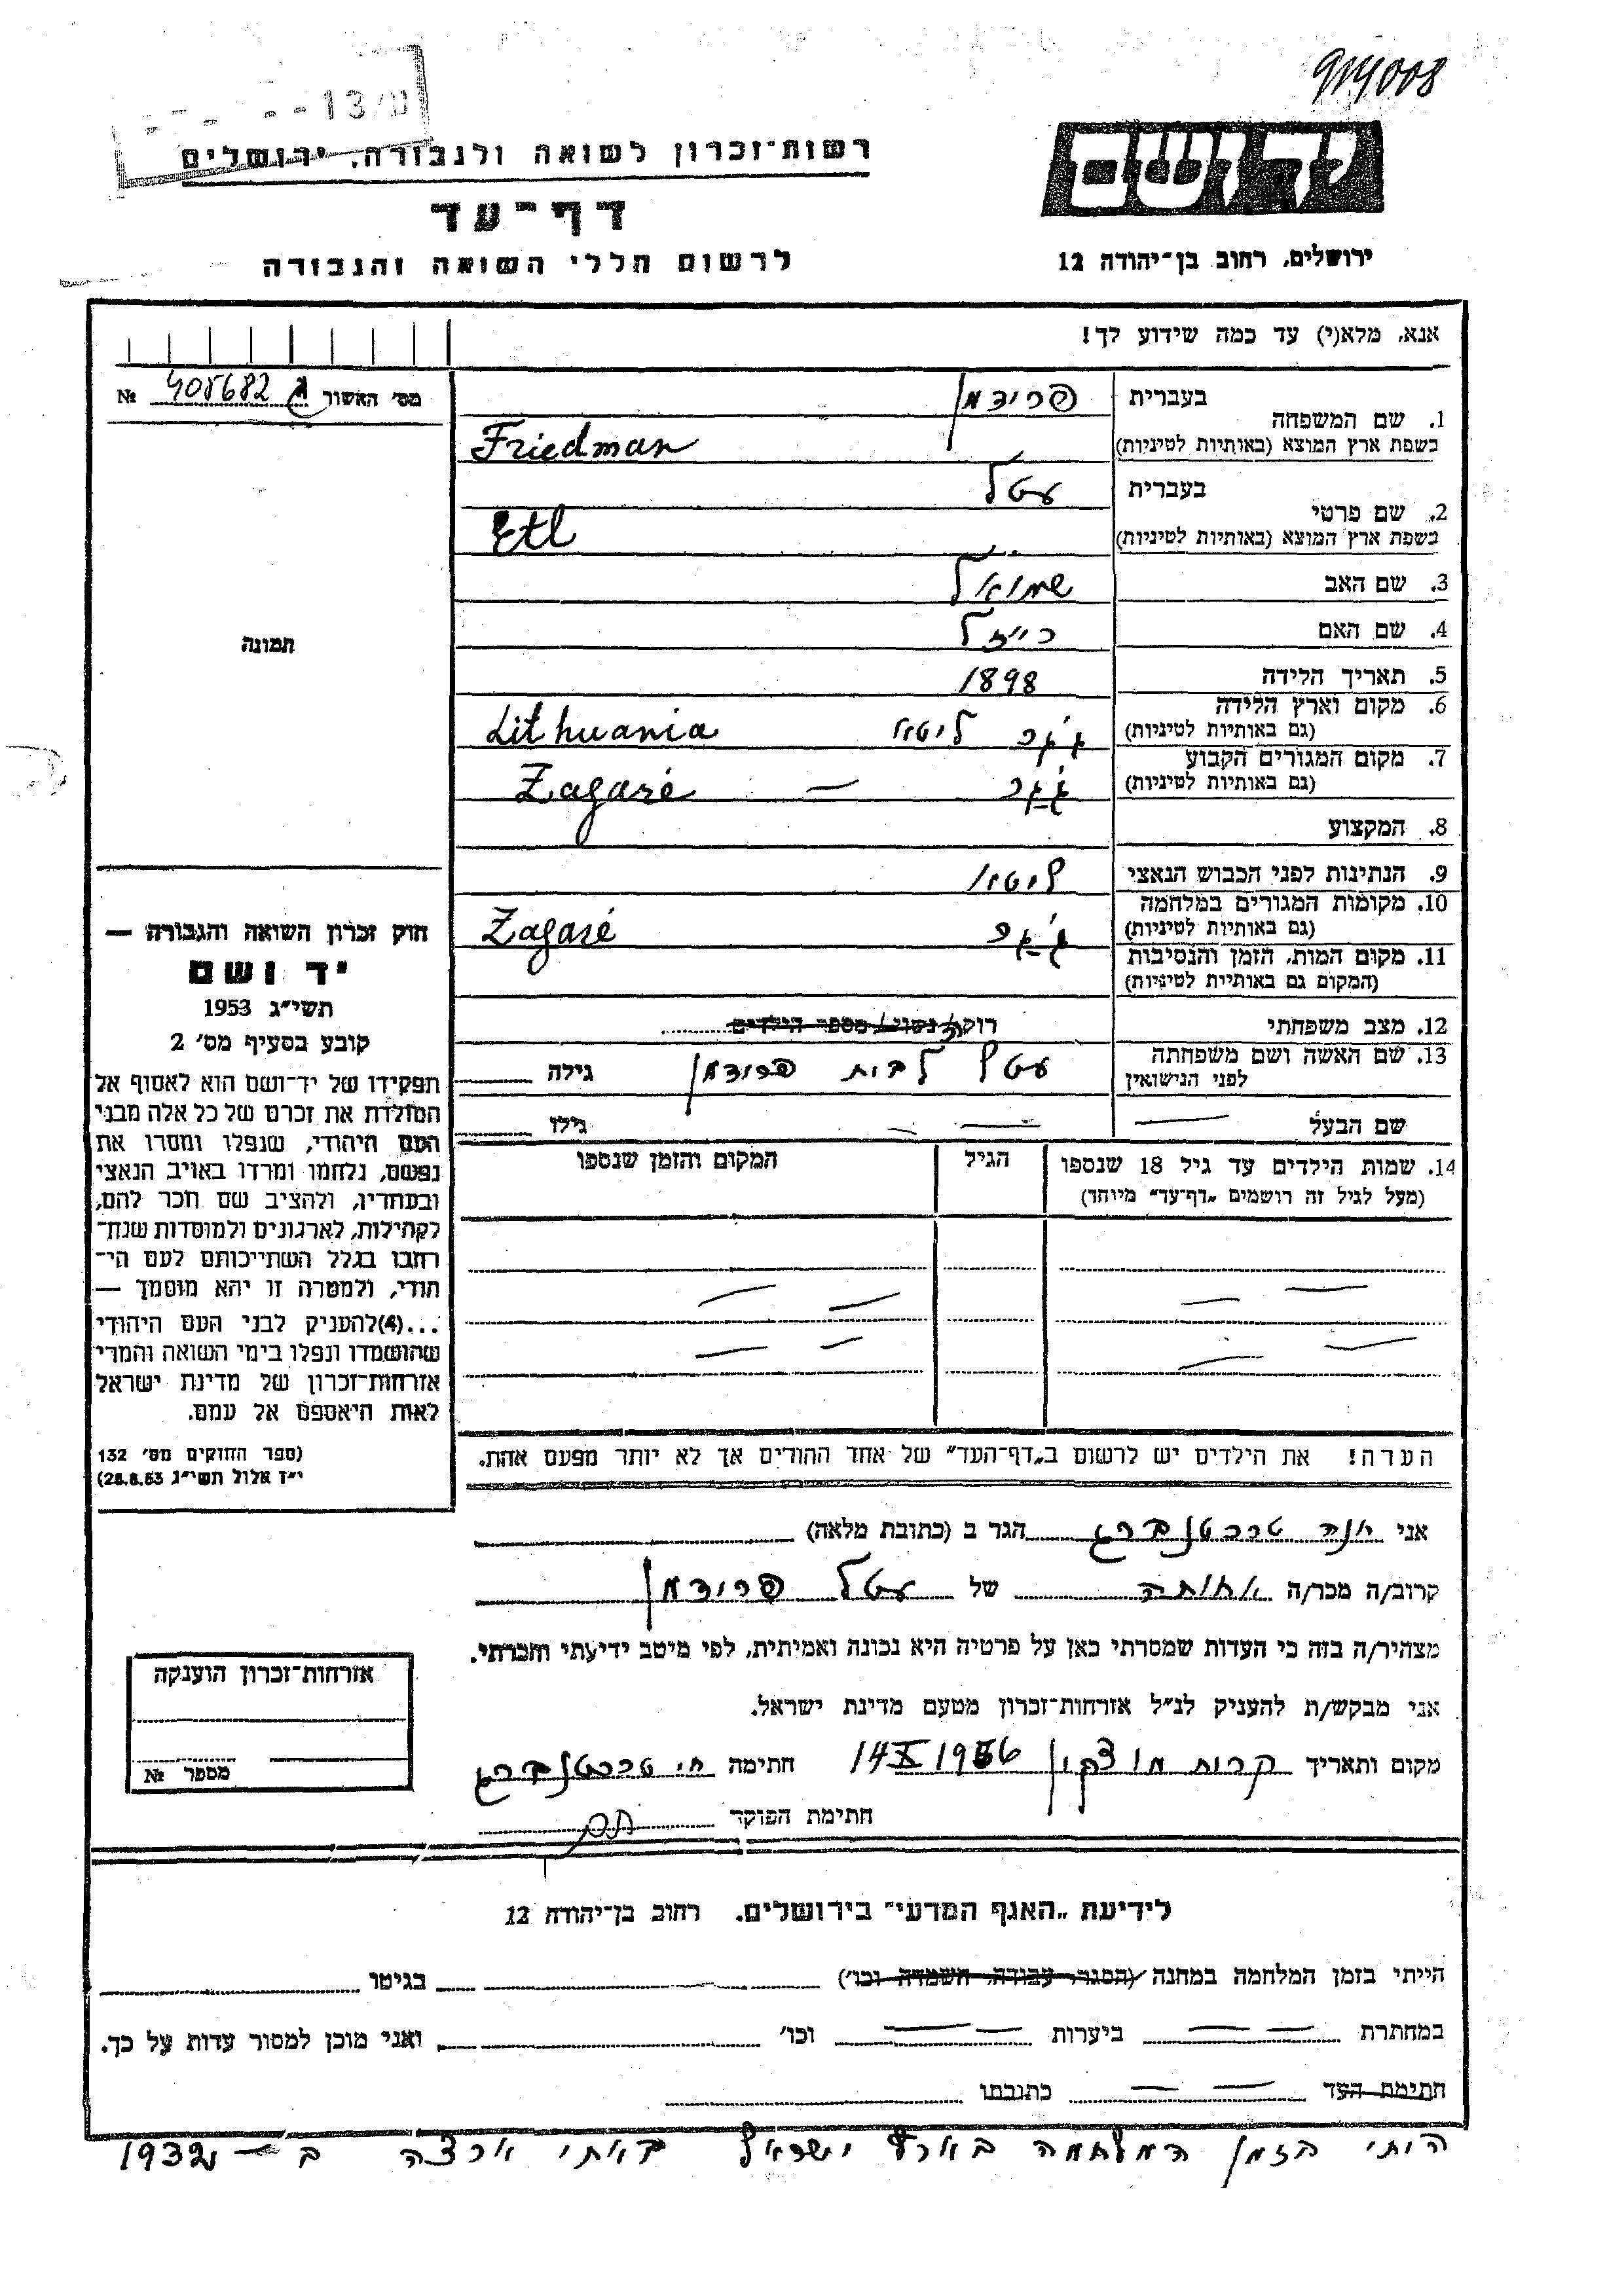 914008
רשות־זכרון לשואה ולגבורה, ירושלים
דף־עד
לרשום חללי השואה והגבורה
יד ושם
ירושלים, רחוב בן־יהודה 12
אנא, מלא(י) עד כמה שידוע לך!
מס׳ האשור 405682 №
תמונה
1. שם המשפחה
בעברית פרידמן
בשפת ארץ המוצא (באותיות לטיניות) Friedman
2. שם פרטי
בעברית עטל
בשפת ארץ המוצא (באותיות לטיניות) Etl
3. שם האב שמואל
4. שם האם
5. תאריך הלידה 1898
6. מקום וארץ הלידה ליטא Lithuania
(גם באותיות לטיניות)
7. מקום המגורים הקבוע — Zagaré
(גם באותיות לטיניות)
8. המקצוע
9. הנתינות לפני הכבוש הנאצי ליטא
10. מקומות המגורים במלחמה Zagaré
(גם באותיות לטיניות)
11. מקום המות, הזמן והנסיבות
(המקום גם באותיית לטיניות)
12. מצב משפחתי רוק/ה נשוי/ מספר הילדים
13. שם האשה ושם משפחתה
לפני הנישואין עטל לבית פרידמן גילה
שם הבעל — גילו
14. שמות הילדים עד גיל 18 שנספו
(מעל לגיל זה רושמים „דף־עד״ מיוחד)
הגיל
המקום והזמן שנספו
הערה! את הילדים יש לרשום ב„דף־העד״ של אחד ההורים אך לא יותר מפעם אחת.
חוק זכרון השואה והגבורה —
יד ושם
תשי״ג 1953
קובע בסעיף מס׳ 2
תפקידו של יד־ושם הוא לאסוף אל
המולדת את זכרם של כל אלה מבני
העם היהודי, שנפלו ומסרו את
נפשם, נלחמו ומרדו באויב הנאצי
ובעוזריו, ולהציב שם וזכר להם,
לקהילות, לארגונים ולמוסדות שנח־
רבו בגלל השתייכותם לעם הי־
הודי, ולמטרה זו יהא מוסמך —
...(4) להעניק לבני העם היהודי
שהושמדו ונפלו בימי השואה והמרי
אזרחות־זכרון של מדינת ישראל
לאות היאספם אל עמם.
(ספר החוקים מס׳ 132
י״ז אלול תשי״ג 28.8.53)
אני הגר ב (כתובת מלאה)
קרוב/ה מכר/ה אחותה של עטל פרידמן
מצהיר/ה בזה כי העדות שמסרתי כאן על פרטיה היא נכונה ואמיתית, לפי מיטב ידיעתי והכרתי.
אני מבקש/ת להעניק לנ״ל אזרחות־זכרון מטעם מדינת ישראל.
מקום ותאריך קרית מוצקין 14 X 1956 חתימה
חתימת הפוקד
אזרחות־זכרון הוענקה
מספר №
לידיעת „האגף המדעי״ בירושלים, רחוב בן־יהודה 12
הייתי בזמן המלחמה במחנה (הסגר, עבודה, השמדה וכו׳) בגיטו
במחתרת ביערות וכו׳ ואני מוכן למסור עדות על כך.
חתימת העד כתובתו
היתי בזמן המלחמה בארץ ישראל באתי ארצה ב — 1932